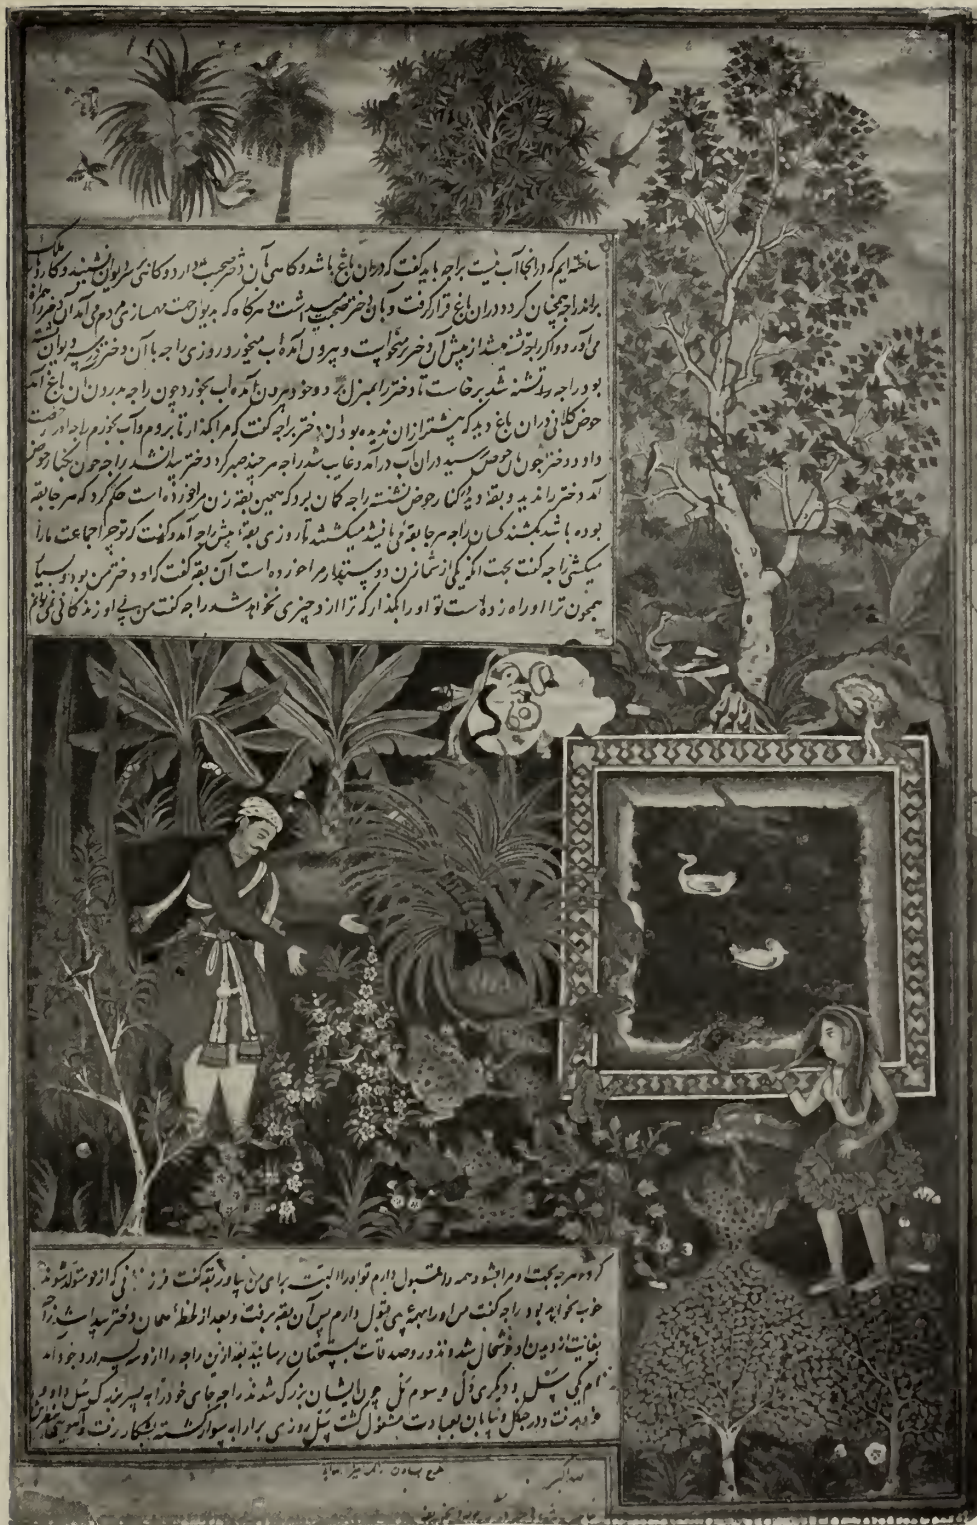 ساخته ایم که در انجا آب نیست براجه باید گفت که در ان باغ باشد و کاهی بآن دختر صحبت دارد و کاهی بر سر دیوان نشیند و کار
براند راجه همچنان کرد و دران باغ قرار گرفت و بان دختر صحبت میداشت و هر کاه که بدیوان جهت مردم می آمد ان دختر همراه
می آورد و اگر راجه تشنه میشد از پیش آن دختر برمیخواست و بیرون آمده اب میخورد روزی راجه با آن دختر
بود راجه تشنه شد برخاست تا دختر را بمنزل برد و خود بیرون آمده اب بخورد چون راجه بدرون ان باغ آمد
حوض کلانی دران باغ دید که پیشتر ازان ندیده بود ان دختر براجه گفت که مرا بگذار تا بروم و آب بخورم راجه اورا رخصت
داد و دختر چون بان حوض رسید دران آب درآمد و غایب شد راجه هر چند صبر کرد دختر پیدا نشد راجه چون بکنار حوض
آمد دختر را ندید و بقه دید در کنار حوض نشسته راجه کمان برد که همین بقه زن مرا خورده است حکم کرد که هر جا بقه
بوده باشد بکشند کسان راجه هر جا بقه می یافتند میکشتند تا روزی بقه پیش راجه آمد و گفت که تو چرا جماعت مارا
میکشی راجه گفت بجهت انکه یکی از شما زن دوستدار مرا خورده است آن بقه گفت که او دختر من بود و بسیار
همچون ترا او راه زده است تو اورا بگذار که ترا ازو چیزی نخواهد شد راجه گفت من بی او زندکانی نمی توانم
کرد و هر چه بجهت او مرا بشود همه را قبول دارم تو اورا البته برای من بیاور بقه گفت فرزندانی که ازو متولد شوند
خوب نخواهد بود راجه گفت من اورا بهمه چیز قبول دارم پس آن بقه برفت و بعد از لحظه همان دختر پیدا شد راجه
بغایت از دیدن او خوشحال شد و نذور و صدقات بمستحقان رسانید بعد ازین راجه را ازو سه پسر در وجود آمد
نام یکی سَل و دیگری دَل و سوم بَل چون ایشان بزرک شدند راجه جای خود را به پسر بزرک سَل داد و
خود برفت و در جنکل و بیابان بعبادت مشغول گشت سَل روزی برارابه سوار گشته بشکار رفت و آهوی
طرح بساون
الله اکبر